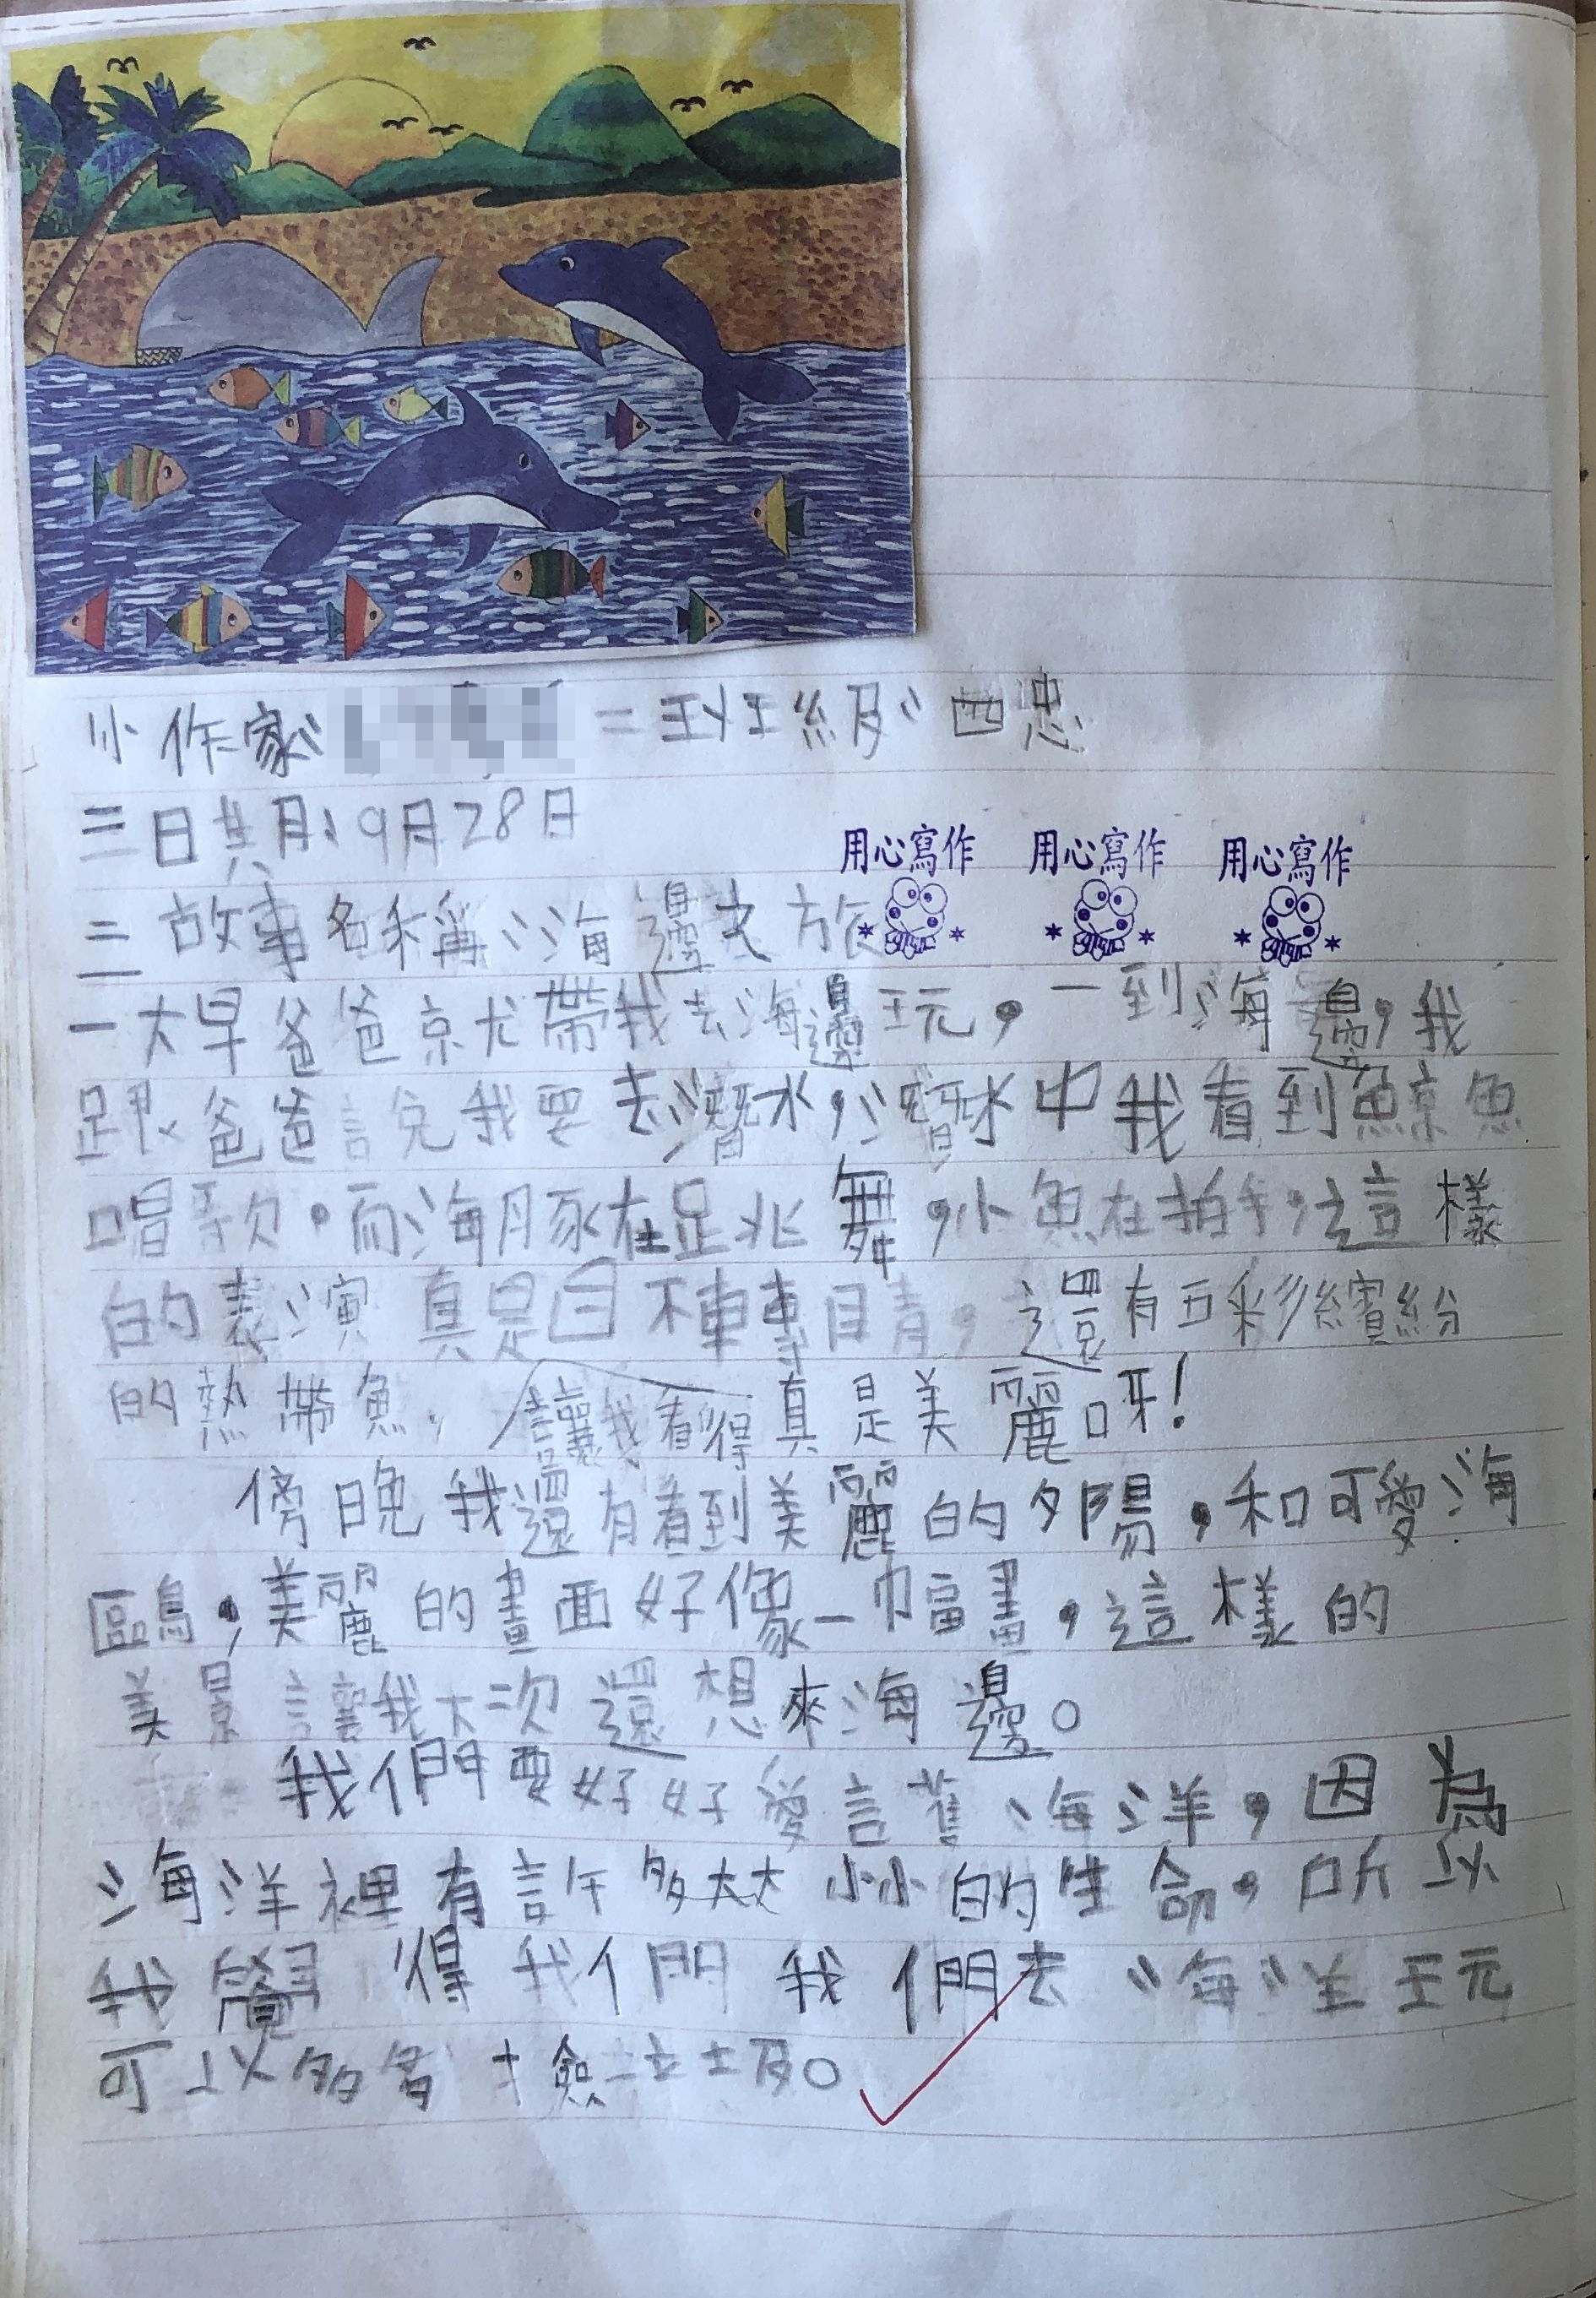 小作家： 二班級：四忠
三日期：9月28日
三故事名稱：海邊之旅
用心寫作 用心寫作 用心寫作
一大早爸爸就帶我去海邊玩，一到海邊，我
跟爸爸說我要去潛水，潛水中我看到鯨魚
唱歌，而海豚在跳舞，小魚在拍手，這樣
的表演真是目不轉睛，還有五彩繽紛
的熱帶魚，讓我看得真是美麗呀！
傍晚我還有看到美麗的夕陽，和可愛海
鷗，美麗的畫面好像一幅畫，這樣的
美景讓我大次還想來海邊。
我們要好好愛護海洋，因為
海洋裡有許多大大小小的生命，所以
我覺得我們我們去海洋玩
可以多多撿垃圾。